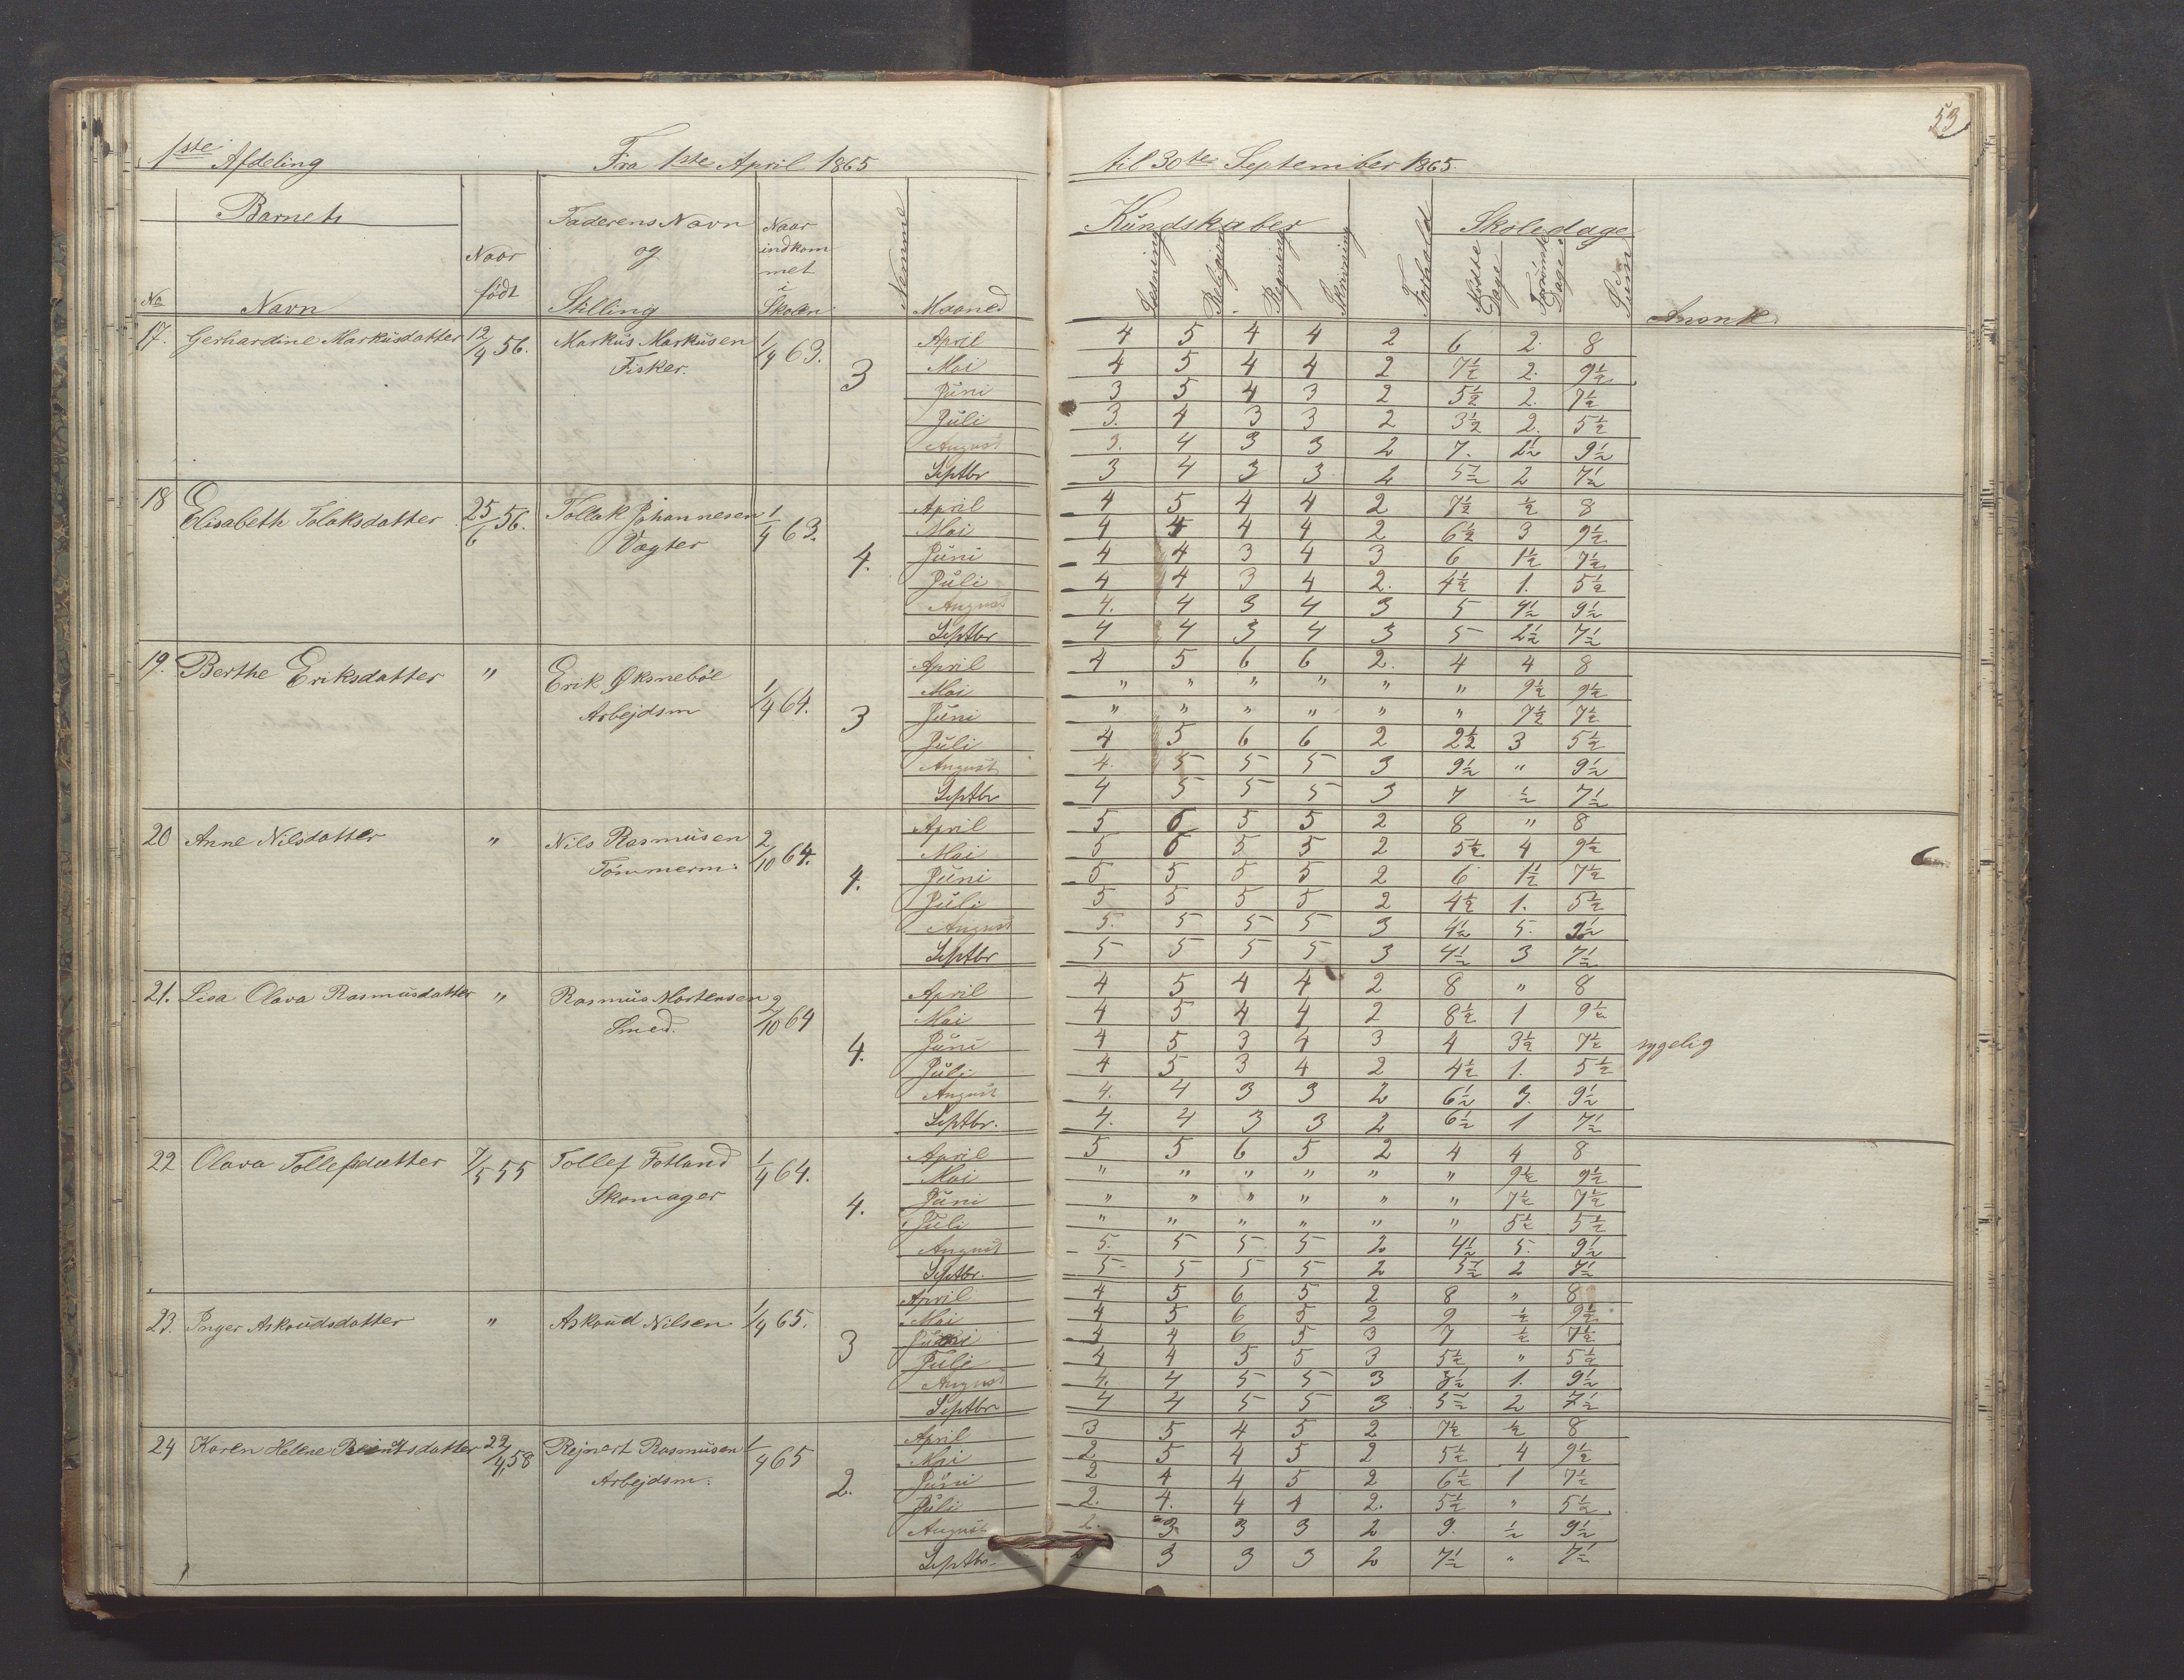 53
1ste Afdeling Fra 1ste April 1865 til 30te September 1865.
Barnets Faderens Navn Naar Nemme Kundskaber Forhold Skoledage
Naar og indkom Læsning Religion Regning Skrivning Mødte Dage Forsømte Dage Sum
født met i
No Navn Stilling Skolen Maaned Anmk.
17. Gerhardine Markusdatter 12/4 56. Markus Markusen 1/4 63. 3 April 4 5 4 4 2 6 2. 8
Fisker. Mai 4 5 4 4 2 7½ 2. 9½
Juni 3 5 4 3 2 5½ 2. 7½
Juli 3. 4 3 3 2 3½ 2. 5½
August 3. 4 3 3 2 7. 2½ 9½
Septbr 3 4 3 3 2 5½ 2 7½
18 Elisabeth Tolaksdatter 25/6 56. Tollak Johannesen 1/4 63. 4. April 4 5 4 4 2 7½ ½ 8
Vægter Mai 4 4 4 4 2 6½ 3 9½
Juni 4 4 3 4 3 6 1½ 7½
Juli 4 4 3 4 2. 4½ 1. 5½
August 4. 4 3 4 3 5 4½ 9½
Septbr 4 4 3 4 3 5 2½ 7½
19. Berthe Eriksdatter " Erik Øksnebøe 1/4 64. 3 April 4 5 6 6 2. 4 4 8
Arbejdsm Mai " " " " " " 9½ 9½
Juni " " " " " " 7½ 7½
Juli 4 5 6 6 2 2½ 3 5½
August 4. 5 5 5 3 9½ " 9½
Septbr 4 5 5 5 3 7 ½ 7½
20 Anne Nilsdatter " Nils Rasmusen 2/10 64. 4. April 5 6 5 5 2 8 " 8
Tømmerm: Mai 5 6 5 5 2 5½ 4 9½
Juni 5 5 5 5 2 6 1½ 7½
Juli 5 5 5 5 2 4½ 1. 5½
August 5. 5 5 5 3 4½ 5. 9½
Septbr 5 5 5 5 3 4½ 3 7½
21. Lisa Olava Rasmusdatter " Rasmus Mortensen 2/10 64 4. April 4 5 4 4 2 8 " 8
Smed. Mai 4 5 4 4 2 8½ 1 9½
Juni 4 5 3 4 3 4 3½ 7½ sygelig
Juli 4 5 3 4 2 4½ 1. 5½
August 4. 4 3 3 2 6½ 3. 9½
Septbr. 4. 4 3 3 2 6½ 1 7½
22 Olava Tollefsdatter 7/5 55 Tollef Fotland 1/4 64. 4. April 5 5 6 5 2 4 4 8
Skomager Mai " " " " " " 9½ 9½
Juni " " " " " " 7½ 7½
Juli " " " " " " 5½ 5½
August 5. 5 5 5 2 4½ 5. 9½
Septbr. 5 5 5 5 2 5½ 2 7½
23. Inger Askoudsdatter " Askoud Nilsen 1/4 65. 3 April 4 5 6 5 2 8 " 8
Mai 4 5 6 5 2 9 ½ 9½
Juni 4 4 6 5 3 7 ½ 7½
Juli 4 4 5 5 3 5½ " 5½
August 4. 4 5 5 3 8½ 1. 9½
Septbr 4 4 5 5 3 5½ 2 7½
24 Karen Helene Reinertsdatter 22/4 58 Rejnert Rasmusen 1/4 65 2. April 3 5 4 5 2 7½ ½ 8
Arbejdsm: Mai 2. 5 4 5 2 5½ 4 9½
Juni 2 4 4 5 2 6½ 1 7½
Juli 2. 4. 4 4 2. 5½ " 5½
August 2. 3. 3 3 2 9. ½ 9½
Septbr. 3 3 3 2 7½ " 7½